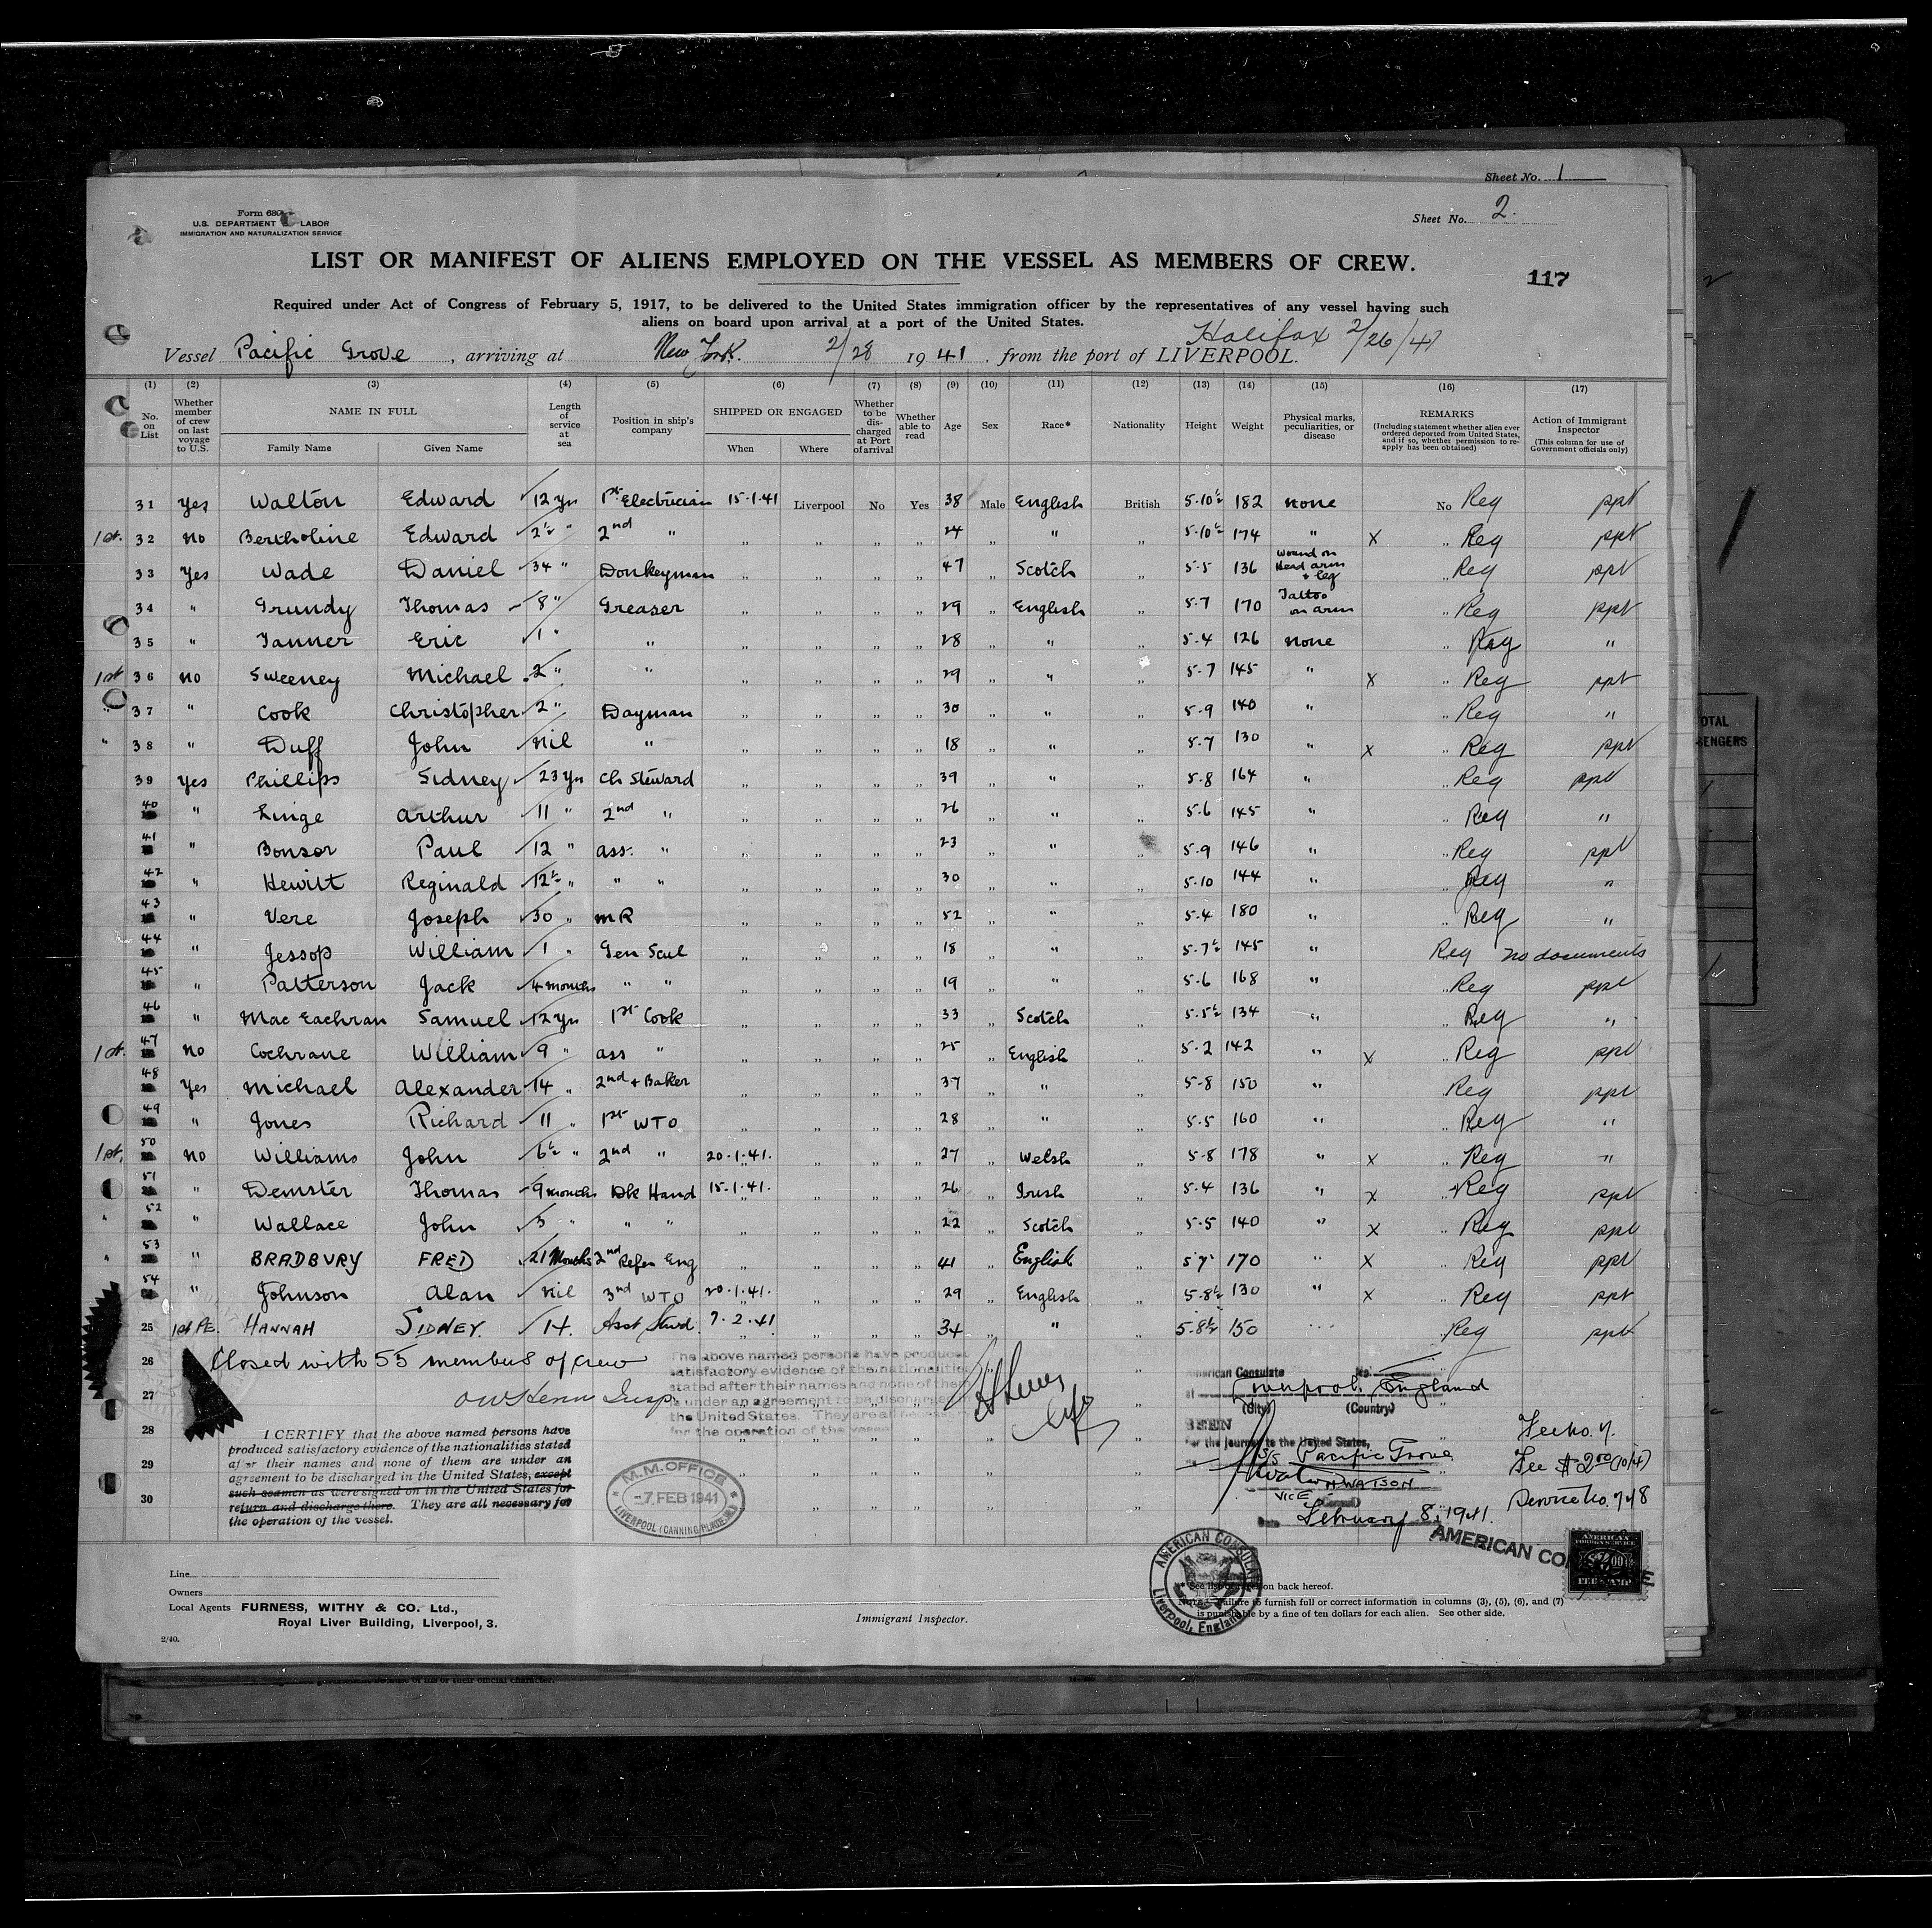 Sheet No. 1
Form 680
U.S. DEPARTMENT LABOR
IMMIGRATION AND NATURALIZATION SERVICE
Sheet No. 2.
LIST OR MANIFEST OF ALIENS EMPLOYED ON THE VESSEL AS MEMBERS OF CREW.
117
Required under Act of Congress of February 5, 1917, to be delivered to the United States immigration officer by the representatives of any vessel having such
aliens on board upon arrival at a port of the United States.
Halifax 2/26/41
Vessel Pacific Grove, arriving at New York. 2/28 1941, from the port of LIVERPOOL.
(1) (2) (3) (4) (5) (6) (7) (8) (9) (10) (11) (12) (13) (14) (15) (16) (17)
No. on List
Whether member of crew on last voyage to U.S.
NAME IN FULL
Family Name Given Name
Length of service at sea
Position in ship's company
SHIPPED OR ENGAGED
When Where
Whether to be discharged at Port of arrival
Whether able to read
Age
Sex
Race*
Nationality
Height
Weight
Physical marks, peculiarities, or disease
REMARKS
(Including statement whether alien ever ordered deported from United States, and if so, whether permission to re-apply has been obtained)
Action of Immigrant Inspector
(This column for use of Government officials only)
31 Yes Walton Edward 12 yrs 1st Electrician 15.1.41 Liverpool No Yes 38 Male English British 5.10½ 182 none No Reg ppt
1st. 32 No Bertholine Edward 2½ " 2nd " „ „ „ „ 24 „ " „ 5.10½ 174 " X „ Reg ppt
33 Yes Wade Daniel 34 " Donkeyman „ „ „ „ 47 „ Scotch „ 5.5 136 wound on Head arm + leg „ Reg ppt
34 " Grundy Thomas 8 " Greaser „ „ „ „ 29 „ English „ 5.7 170 Tattoo on arm „ Reg ppt
35 " Tanner Eric 1 " " „ „ „ „ 28 „ " „ 5.4 126 none „ Reg "
1st 36 no Sweeney Michael 2 " " „ „ „ „ 29 „ " „ 5.7 145 " X „ Reg ppt
" 37 " Cook Christopher 2 " Dayman „ „ „ „ 30 „ " „ 5.9 140 " „ Reg "
" 38 " Duff John nil " „ „ „ „ 18 „ " „ 5.7 130 " X „ Reg ppt
39 Yes Phillips Sidney 23 yrs Ch Steward „ „ „ „ 39 „ " „ 5.8 164 " „ Reg ppt
40 " Linge Arthur 11 " 2nd " „ „ „ „ 26 „ " „ 5.6 145 " „ Reg "
41 " Bonsor Paul 12 " ass. " „ „ „ „ 23 „ " „ 5.9 146 " „ Reg ppt
42 " Hewitt Reginald 12½ " " " „ „ „ „ 30 „ " „ 5.10 144 " „ Reg "
43 " Vere Joseph 30 „ mR „ „ „ „ 52 „ " „ 5.4 180 " „ Reg "
44 " Jessop William 1 „ Gen Scul „ „ „ „ 18 „ " „ 5.7½ 145 " Reg no documents
45 " Patterson Jack 4 months " " „ „ „ „ 19 „ " „ 5.6 168 " „ Reg ppt
46 " Mac Eachran Samuel 12 yrs 1st Cook „ „ „ „ 33 „ Scotch „ 5.5½ 134 " „ Reg "
1st. 47 no Cochrane William 9 " ass " „ „ „ „ 25 „ English „ 5.2 142 " X „ Reg ppt
48 Yes Michael Alexander 14 „ 2nd + Baker „ „ „ „ 37 „ " „ 5.8 150 " Reg ppt
49 " Jones Richard 11 „ 1st WTO „ „ „ „ 28 „ " „ 5.5 160 " „ Reg "
1st. 50 no Williams John 6½ " 2nd " 20.1.41. „ „ „ 27 „ Welsh „ 5.8 178 " X „ Reg "
51 " Demster Thomas 9 months Dk Hand 15.1.41. „ „ „ 26 „ Irish „ 5.4 136 " X „ Reg ppt
" 52 " Wallace John 3 " " " „ „ „ „ 22 „ Scotch „ 5.5 140 " X „ Reg ppt
" 53 " BRADBURY FRED 21 Months 2nd Refer Eng „ „ „ „ 41 „ English „ 5 7 170 " X „ Reg ppt
54 " Johnson Alan nil 3rd WTO 20.1.41. „ „ „ 29 „ English „ 5.8½ 130 " X „ Reg ppt
25 1st PE. HANNAH SIDNEY. 14. Asst Stwd. 7.2.41 „ „ „ 34 „ " „ 5.8½ 150 „ Reg ppt
26 Closed with 55 members of crew
27
28
29
30
The above named persons have produced
satisfactory evidence of the nationalities
stated after their names and none of them
is under an agreement to be discharged in
the United States. They are all necessary
for the operation of the vessel
I CERTIFY that the above named persons have
produced satisfactory evidence of the nationalities stated
after their names and none of them are under an
agreement to be discharged in the United States, except
such seamen as were signed on in the United States for
return and discharge there. They are all necessary for
the operation of the vessel.
M.M. OFFICE
-7 FEB 1941
LIVERPOOL (CANNING PLACE)
American Consulate No.
at Liverpool, England
(City) (Country)
SEEN
For the journey to the United States,
S/S Pacific Grove
WATSON
VICE Consul
Date February 8, 1941.
Fee No. 7.
Fee $2.00 (10/4)
Service No. 748
AMERICAN CONSULATE
Liverpool, England
AMERICAN
FOREIGN SERVICE
$2.00
FEE STAMP
Line
Owners
Local Agents FURNESS, WITHY & CO. Ltd.,
Royal Liver Building, Liverpool, 3.
2/40.
Immigrant Inspector.
* See list of races on back hereof.
NOTE.—Failure to furnish full or correct information in columns (3), (5), (6), and (7)
is punishable by a fine of ten dollars for each alien. See other side.
TOTAL
PASSENGERS